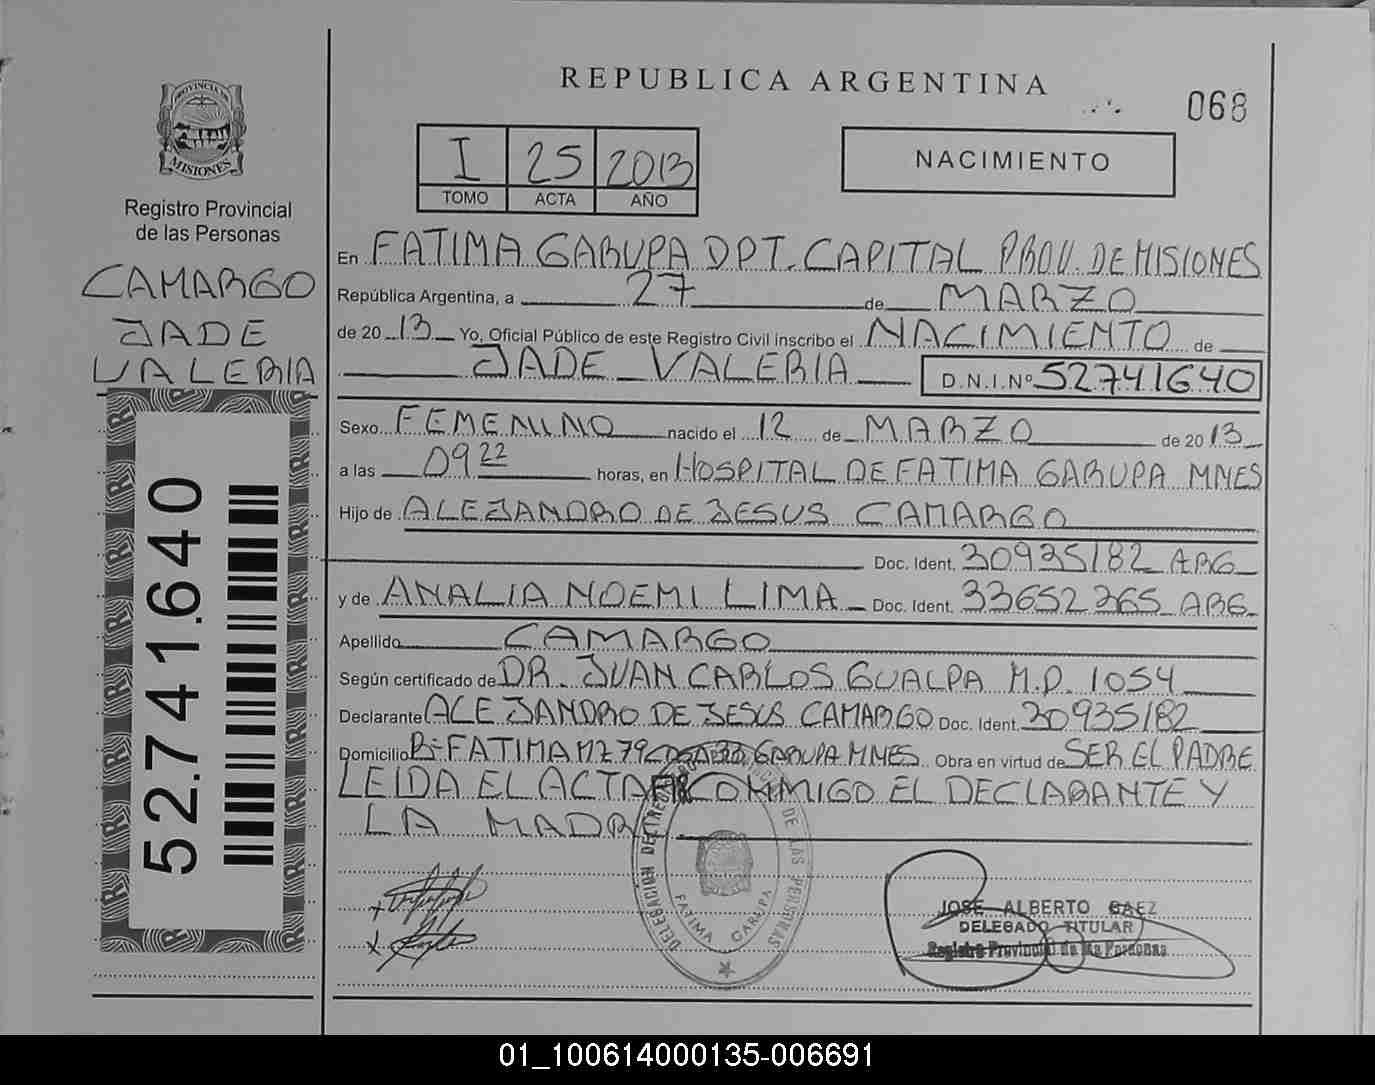 REPUBLICA ARGENTINA
068
PROVINCIA DE
MISIONES
Registro Provincial
de las Personas
CAMARGO
JADE
VALERIA
52.741.640
I 25 2013
TOMO ACTA AÑO
NACIMIENTO
En FATIMA GARUPA DPT. CAPITAL PROV. DE MISIONES
República Argentina, a 27 de MARZO
de 2013 Yo, Oficial Público de este Registro Civil inscribo el NACIMIENTO de
JADE VALERIA D.N.I.Nº 52741640
Sexo FEMENINO nacido el 12 de MARZO de 2013
a las 09 22 horas, en HOSPITAL DE FATIMA GARUPA MNES
Hijo de ALEJANDRO DE JESUS CAMARGO
Doc. Ident. 30935182 ARG
y de ANALIA NOEMI LIMA Doc. Ident. 33652365 ARG
Apellido CAMARGO
Según certificado de DR. JUAN CARLOS GUALPA M.P. 1054
Declarante ALEJANDRO DE JESUS CAMARGO Doc. Ident. 30935182
Domicilio Bº FATIMA MZ 79 CASA 33 GARUPA MNES Obra en virtud de SER EL PADRE
LEIDA EL ACTA CONMIGO EL DECLARANTE Y
LA MADRE
DE LAS PERSONAS
FATIMA GARUPA
JOSE ALBERTO BAEZ
DELEGADO TITULAR
Registro Provincial de las Personas
01_100614000135-006691